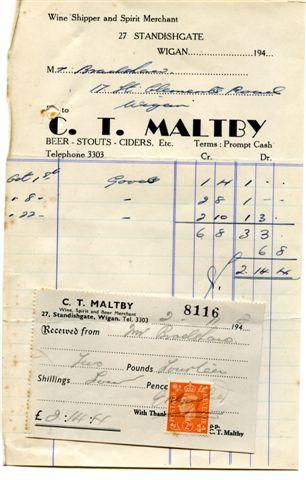 Wine Shipper and Spirit Merchant
27 STANDISHGATE
WIGAN. 194
Mr. Bradshaw
17 St Clements Road
Wigan
to
C. T. MALTBY
BEER - STOUTS - CIDERS, Etc. Terms : Prompt Cash
Telephone 3303 Cr. Dr.
Oct 1st Goods 1 4 1
" 8 - " 2 8 1
" 22 - " 2 10 1 3
6 8 3 3
6 8
2 . 14 . 4
C. T. MALTBY
Wine, Spirit and Beer Merchant
27, Standishgate, Wigan. Tel. 3303
8116
194 8
Received from Mr Bradshaw
Two Pounds Fourteen
Shillings Pence
With Thanks
£ 2 . 14 . 4
p.p.
C. T. Maltby